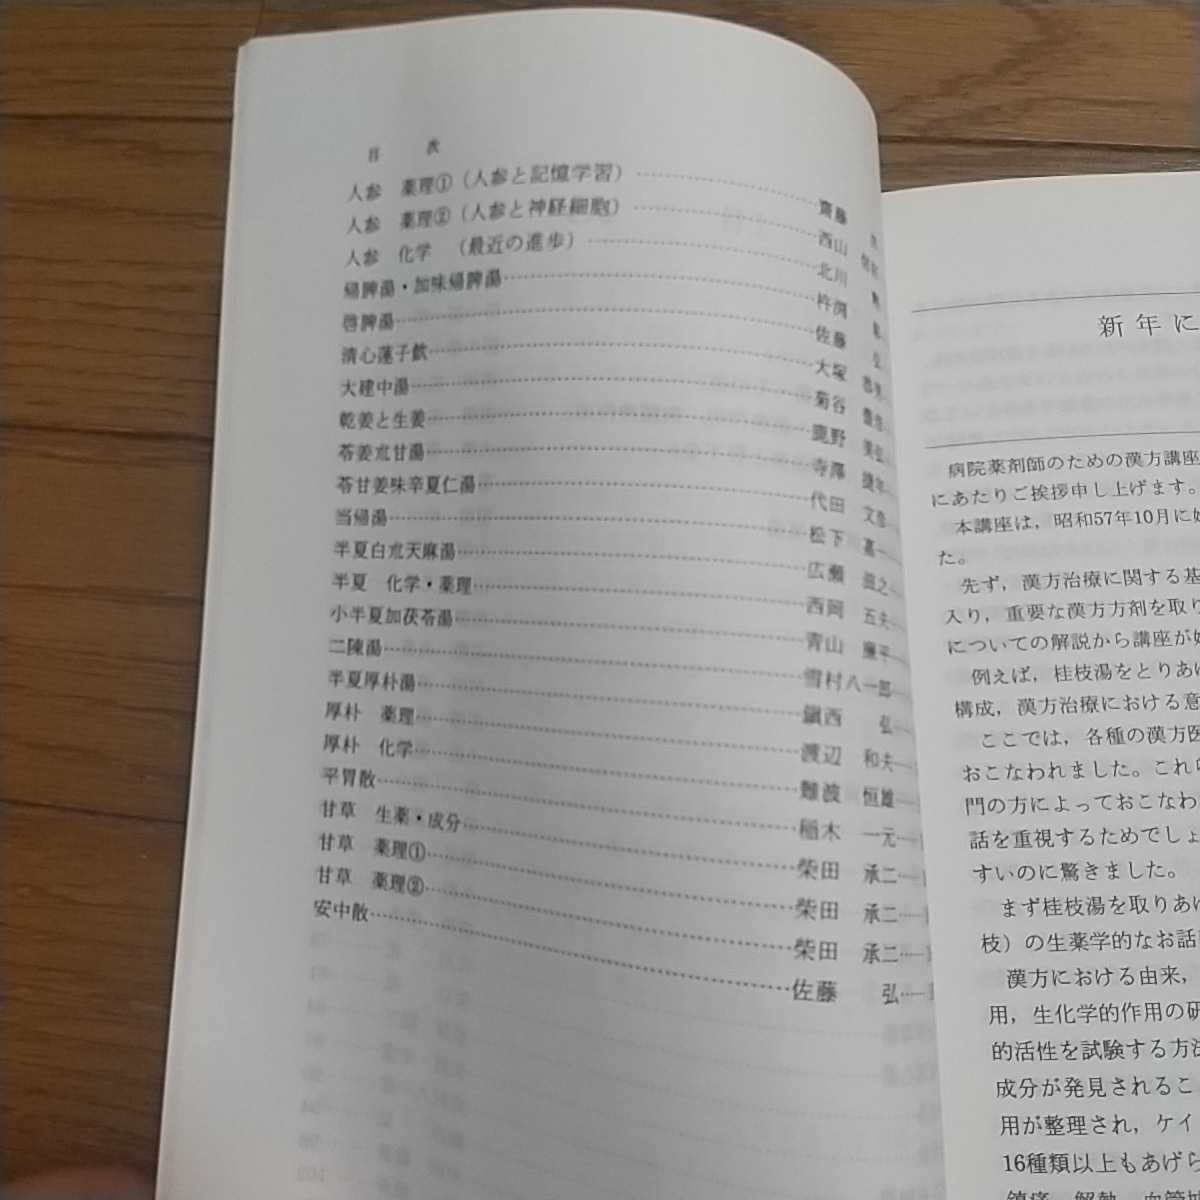 目 次
人参 薬理①（人参と記憶学習）…………齋藤
人参 薬理②（人参と神経細胞）…………西山
人参 化学 （最近の進歩）…………北川
帰脾湯・加味帰脾湯…………杵渕
啓脾湯…………佐藤 弘
清心蓮子飲…………大塚 恭男
大建中湯…………菊谷 豊彦
乾姜と生姜…………鹿野 美弘
苓姜朮甘湯…………寺澤 捷年
苓甘姜味辛夏仁湯…………代田 文彦
当帰湯…………松下 嘉一
半夏白朮天麻湯…………広瀬 滋之
半夏 化学・薬理…………西岡 五夫
小半夏加茯苓湯…………青山 廉平
二陳湯…………雪村八一郎
半夏厚朴湯…………鎭西 弘
厚朴 薬理…………渡辺 和夫
厚朴 化学…………難波 恒雄
平胃散…………稲木 一元
甘草 生薬・成分…………柴田 承二
甘草 薬理①…………柴田 承二
甘草 薬理②…………柴田 承二
安中散…………佐藤 弘
新年に
病院薬剤師のための漢方講座
にあたりご挨拶申し上げます。
本講座は，昭和57年10月に
た。
先ず，漢方治療に関する基
入り，重要な漢方方剤を取り
についての解説から講座が
例えば，桂枝湯をとりあげ
構成，漢方治療における意
ここでは，各種の漢方医
おこなわれました。これ
門の方によっておこなわ
話を重視するためでしょ
すいのに驚きました。
まず桂枝湯を取りあげ
枝）の生薬学的なお話
漢方における由来，
用，生化学的作用の研
的活性を試験する方法
成分が発見されるこ
用が整理され，ケイ
16種類以上もあげら
鎮痛，解熱，血管